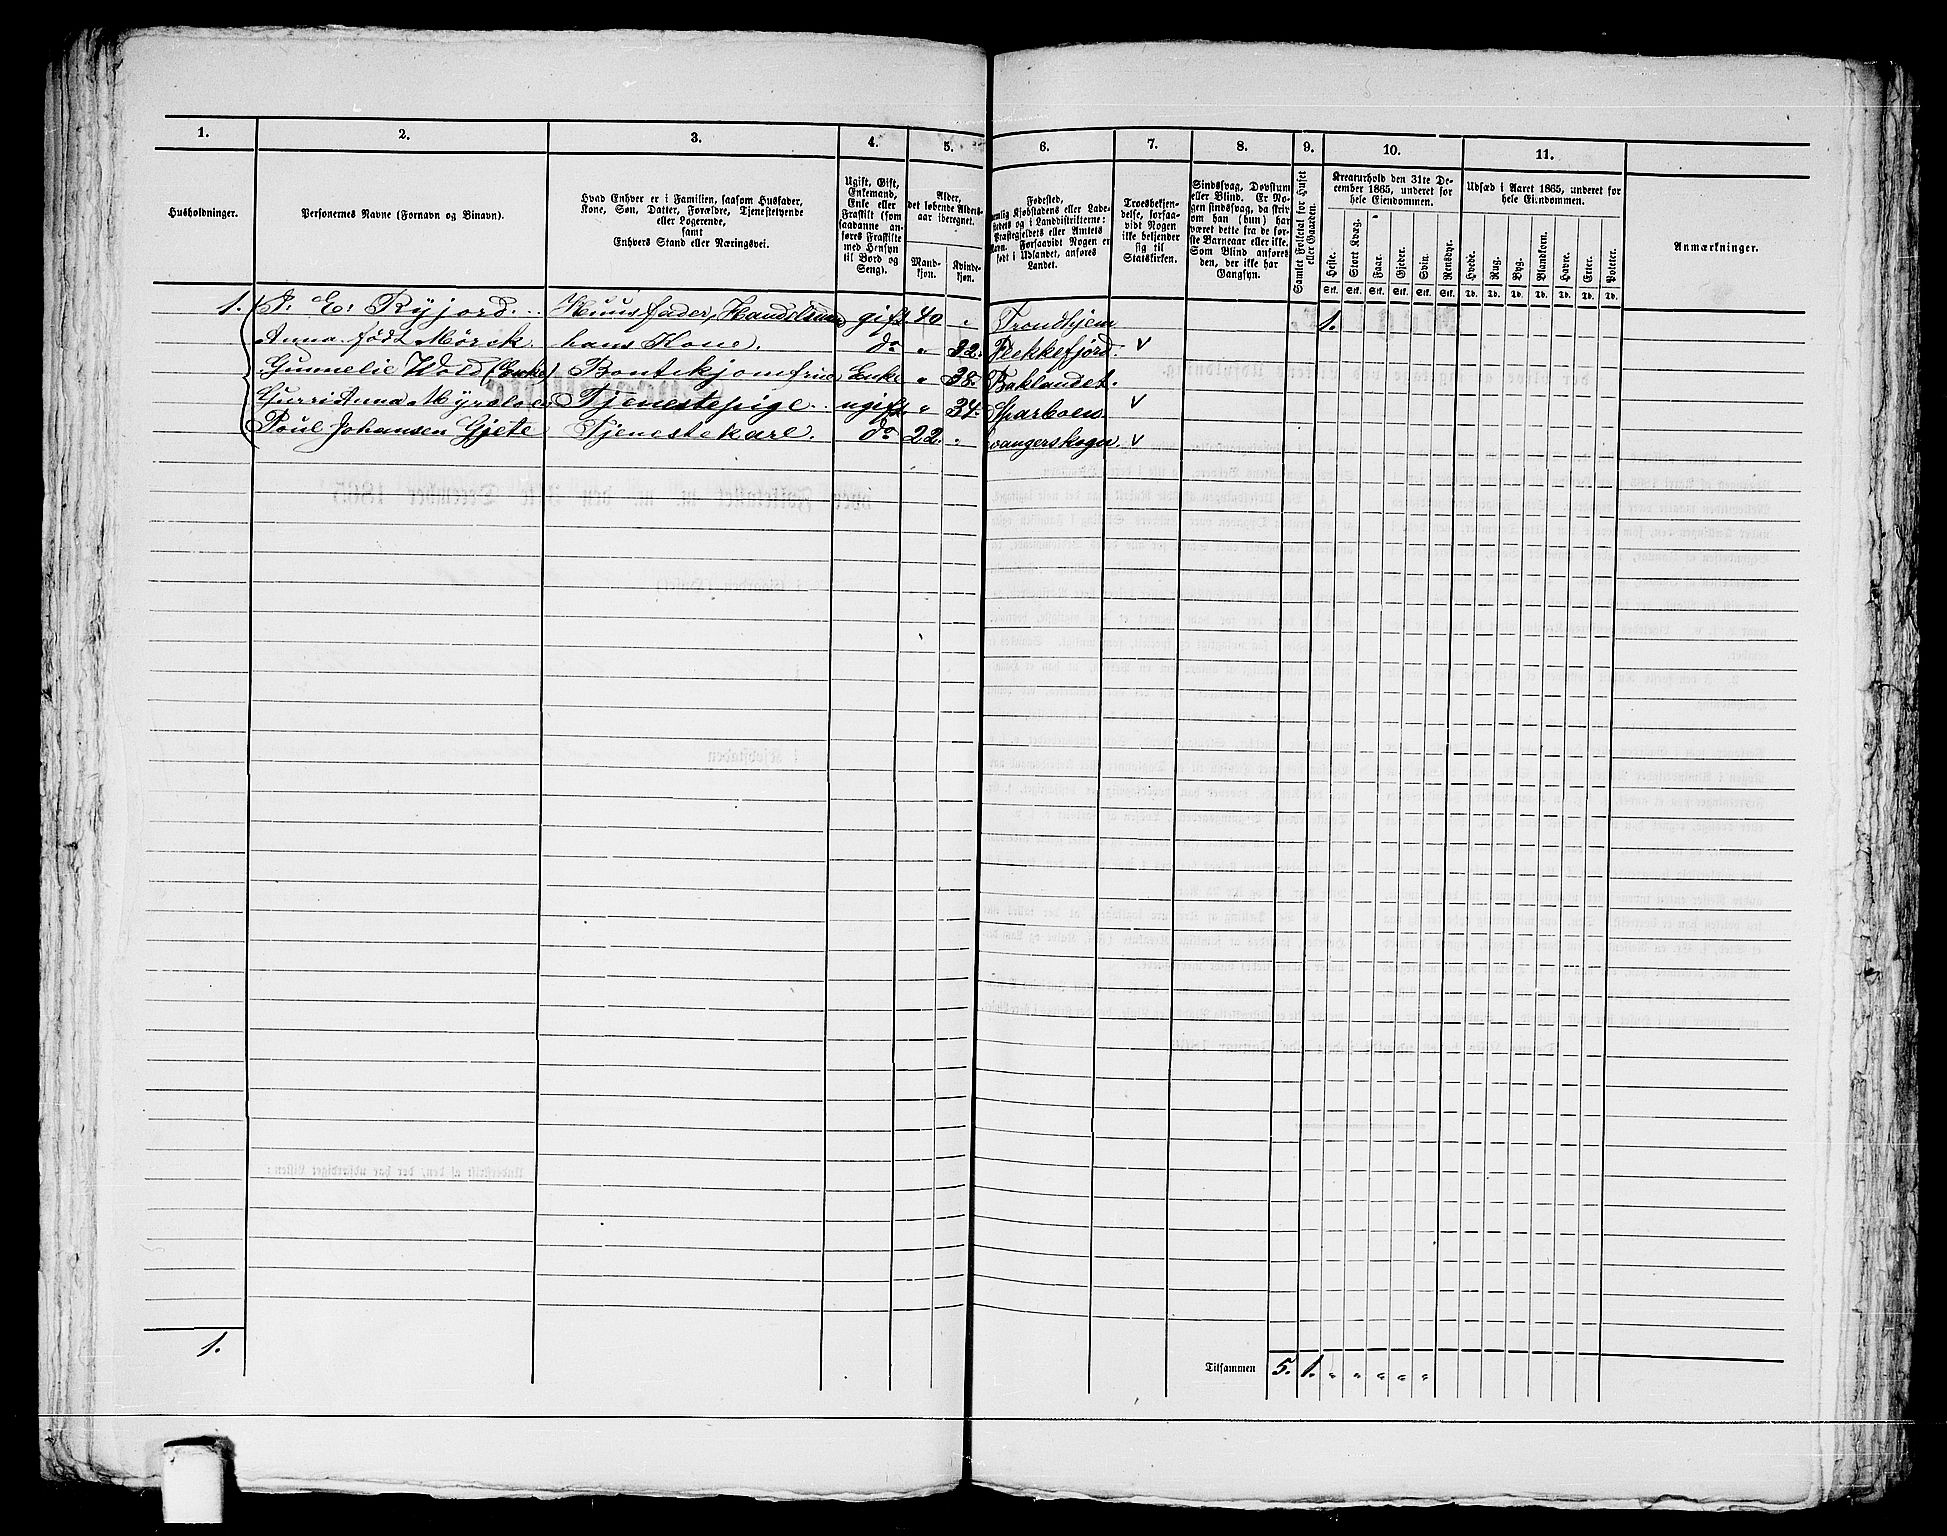 1. 2. 3. 4. 5. 6. 7. 8. 9. 10. 11.
Husholdninger.
Personernes Navne (Fornavn og Binavn).
Hvad Enhver er i Familien, saasom Husfader,
Kone, Søn, Datter, Forældre, Tjenestetyende
eller Logerende,
samt
Enhvers Stand eller Næringsvei.
Ugift, Gift,
Enkemand,
Enke eller
Fraskilt (som
saadanne an-
føres Fraskilte
med Hensyn
til Bord og
Seng).
Alder,
det løbende Alders-
aar iberegnet.
Mand-
kjøn.
Kvinde-
kjøn.
Fødested,
nemlig Kjøbstadens eller Lade-
stedets og i Landdistrikterne:
Præstegjeldets eller Amtets
Navn. Forsaavidt Nogen er
født i Udlandet, anføres
Landet.
Troesbekjen-
delse, forsaa-
vidt Nogen
ikke bekjender
sig til
Statskirken.
Sindssvag, Døvstum
eller Blind. Er No-
gen sindssvag, da skriv
om han (hun) har
været dette fra de før-
ste Barneaar eller ikke.
Som Blind anføres
den, der ikke har
Gangsyn.
Samlet Folketal for Huset
eller Gaarden.
Kreaturhold den 31te De-
cember 1865, underet for
hele Eiendommen.
Heste. Stort Kvæg. Faar. Gjeder. Svin. Rensdyr.
Stk. Stk. Stk. Stk. Stk. Stk.
Udsæd i Aaret 1865, underet for
hele Eiendommen.
Hvede. Rug. Byg. Blandkorn. Havre. Erter. Poteter.
Td. Td. Td. Td. Td. Td. Td.
Anmærkninger.
1. J. E. Ryjord Huusfader, Handelsmand gift 40 " Trondhjem 1.
Anna født Mørsk hans Kone. do " 32. Flekkefjord. v
Gunnelie Wold (Enke) Enke " 38. Baklandet.
Gurri Anna Tjenestepige ugift. " 34. Sparboen v
Poul Johansen Gjete Tjenestekarl. do 22. " v
1.
Tilsammen 5. 1. " " " " "